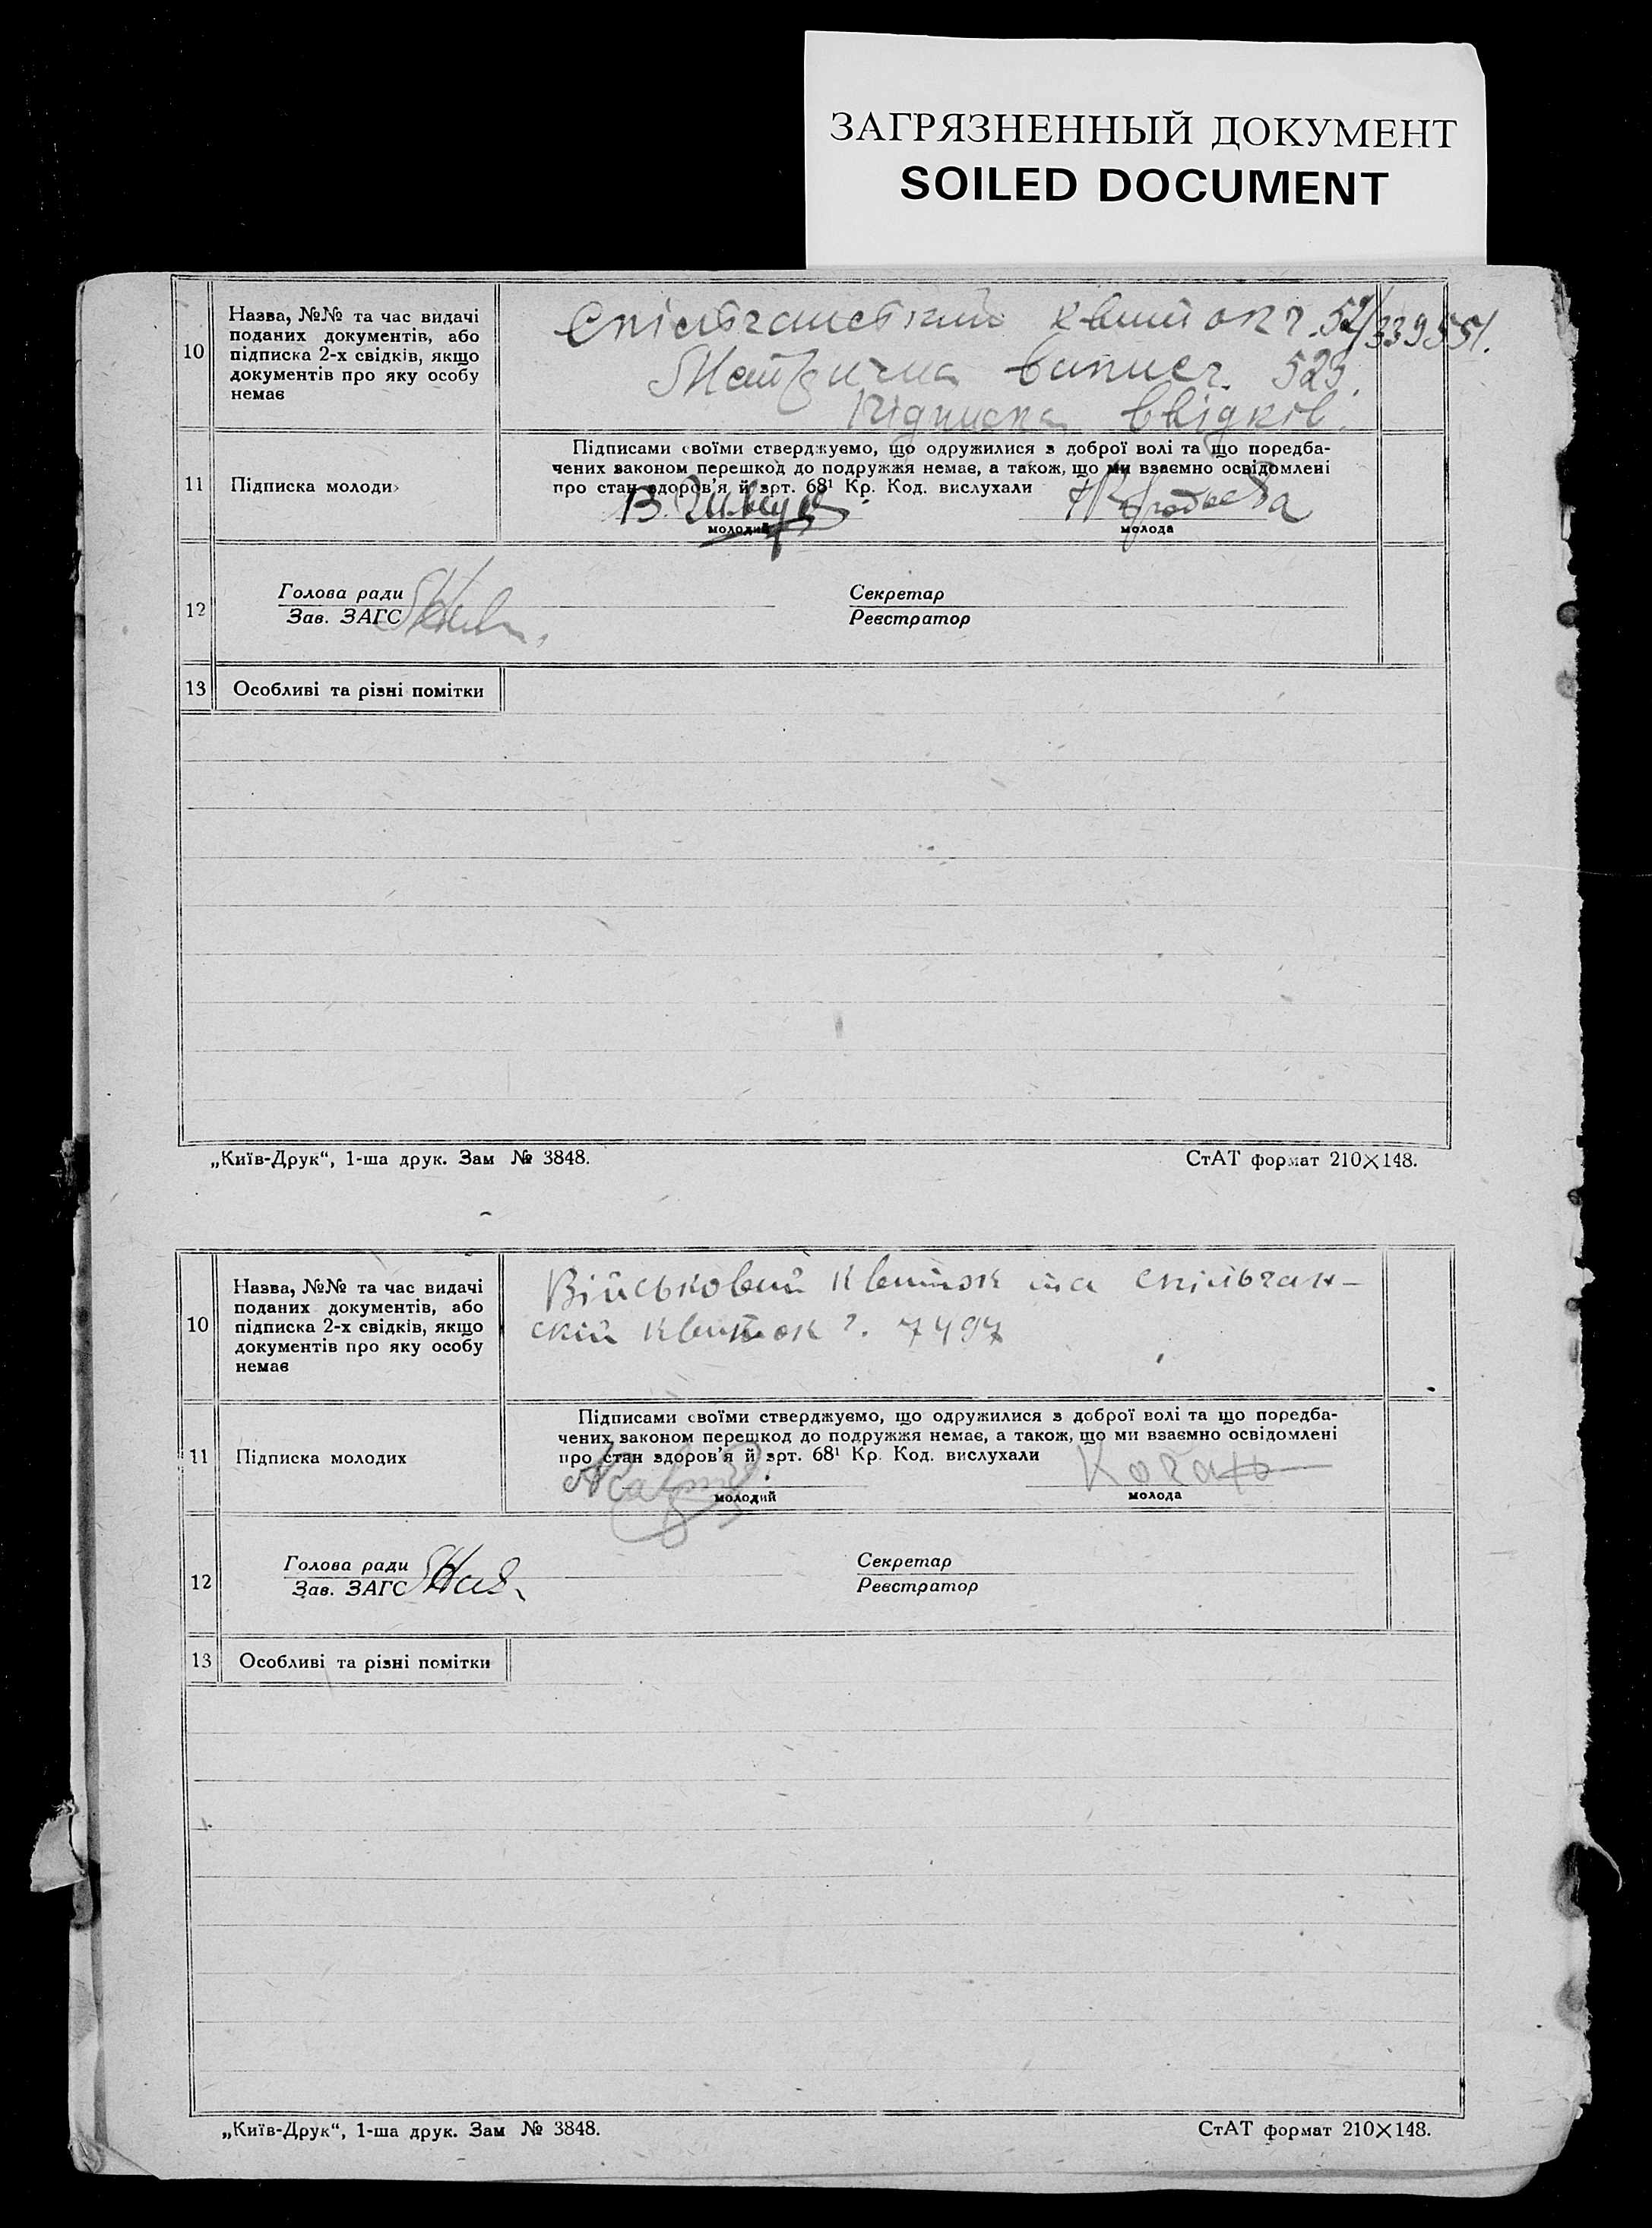 ЗАГРЯЗНЕННЫЙ ДОКУМЕНТ
SOILED DOCUMENT
10
Назва, №№ та час видачі
поданих документів, або
підписка 2-х свідків, якщо
документів про яку особу
немає
квиток ч. 52/339551.
525.
Підписка свідків.
11
Підписка молоди
Підписами своїми стверджуємо, що одружилися з доброї волі та що поредба-
чених законом перешкод до подружжя немає, а також, що ми взаємно освідомлені
про стан здоров'я й арт. 68¹ Кр. Код. вислухали
молодий
молода
12
Голова ради
Зав. ЗАГС
Секретар
Реєстратор
13
Особливі та різні помітки
„Київ-Друк“, 1-ша друк. Зам № 3848.
СтАТ формат 210×148.
10
Назва, №№ та час видачі
поданих документів, або
підписка 2-х свідків, якщо
документів про яку особу
немає
Військовий квиток та спільчан-
скій квиток ч. 7497
11
Підписка молодих
Підписами своїми стверджуємо, що одружилися з доброї волі та що поредба-
чених законом перешкод до подружжя немає, а також, що ми взаємно освідомлені
про стан здоров'я й арт. 68¹ Кр. Код. вислухали
молодий
молода
12
Голова ради
Зав. ЗАГС
Секретар
Реєстратор
13
Особливі та різні помітки
„Київ-Друк“, 1-ша друк. Зам № 3848.
СтАТ формат 210×148.